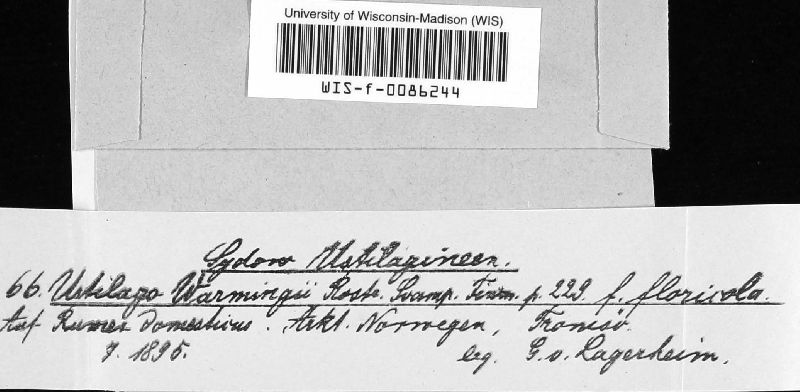 University of Wisconsin-Madison (WIS)
WIS-f-0086244
Sydow Ustilagineen.
66. Ustilago Warmingii Rostr. Svamp. Finm. p. 229. f. floricola.
Auf Rumex domesticus. Arkt. Norwegen, Tromsö.
7. 1895. leg. G. v. Lagerheim.